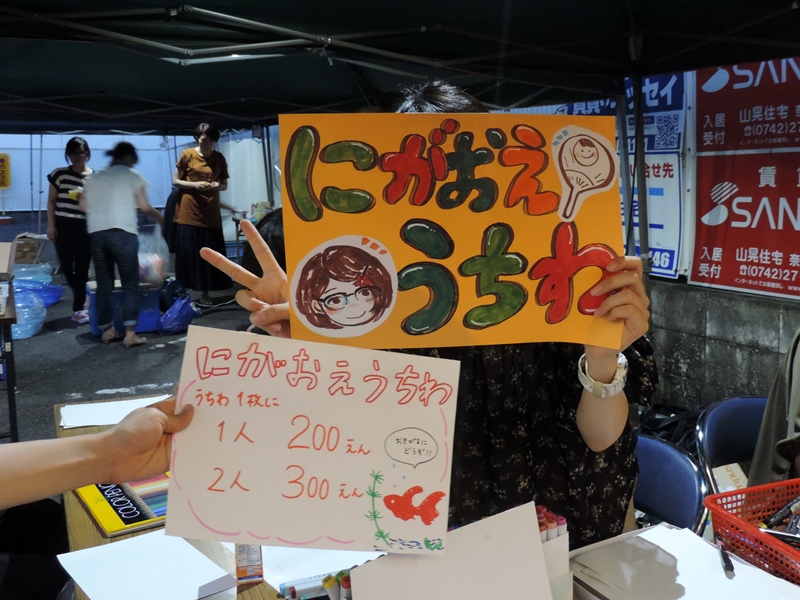 にがおえ
うちわ
にがおえうちわ
うちわ1枚に
1人 200えん
2人 300えん
おきがるに
どうぞ!!
COLOR PENCIL
SAN
入居
受付
山晃住宅
☎(0742)27
賃
SAN
入居
受付
山晃住宅 奈
☎(0742)27